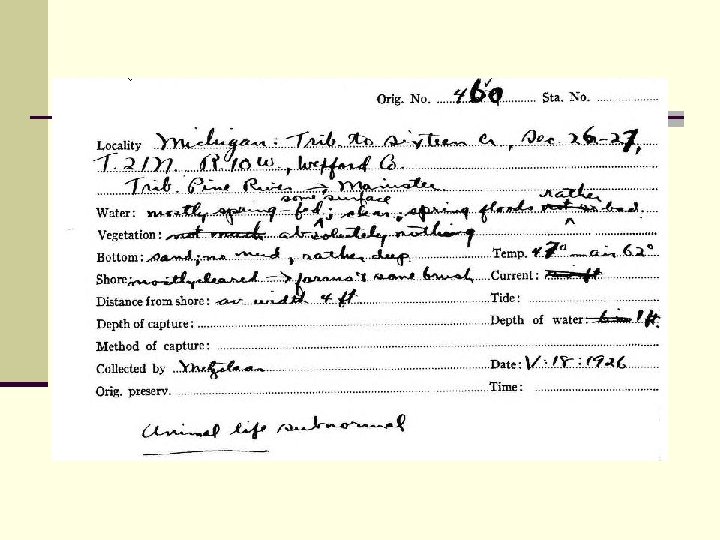 Orig. No. 460 Sta. No.
Locality Michigan: Trib to Sixteen Cr, Sec 26-27,
T. 21N. R 10W., Wexford Co.
Trib. Pine River → Manistee
some surface rather
Water: mostly spring-fed; clear; spring floods not so bad.
Vegetation: not much absolutely nothing
Bottom: sand; no mud, rather deep Temp. 47° - air 62°
Shore: mostly cleared → farms; some brush Current: ft
Distance from shore: av width 4 ft Tide:
Depth of capture: Depth of water: 6 in 1 ft.
Method of capture:
Collected by Metzelaar Date: V:18:1926
Orig. preserv. Time:
Animal life subnormal